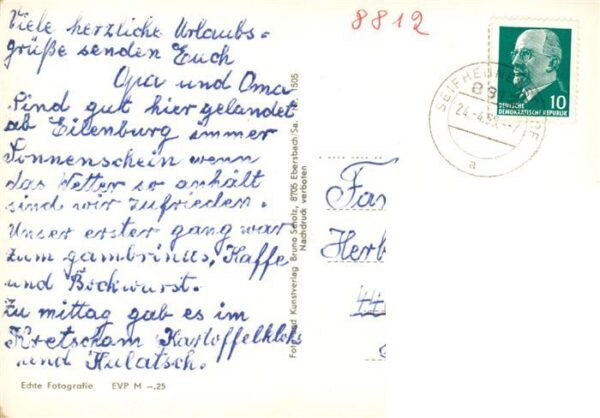 Viele herzliche Urlaubs=
grüße senden Euch
Opa und Oma
Sind gut hier gelandet
ab Eilenburg immer
Sonnenschein wenn
das Wetter so anhält
sind wir zufrieden.
Unser erster gang war
zum gambrinus, Kaffe
und Bockwurst.
Zu mittag gab es im
Kretscham Kartoffelklöhs
und Hulatsch.
Echte Fotografie EVP M –.25
Foto- und Kunstverlag Bruno Scholz, 8705 Ebersbach/Sa. Nr. 1505
Nachdruck verboten
8812
DEUTSCHE
DEMOKRATISCHE REPUBLIK
10
24.-4.69.--7
a
Fam
Herb
44